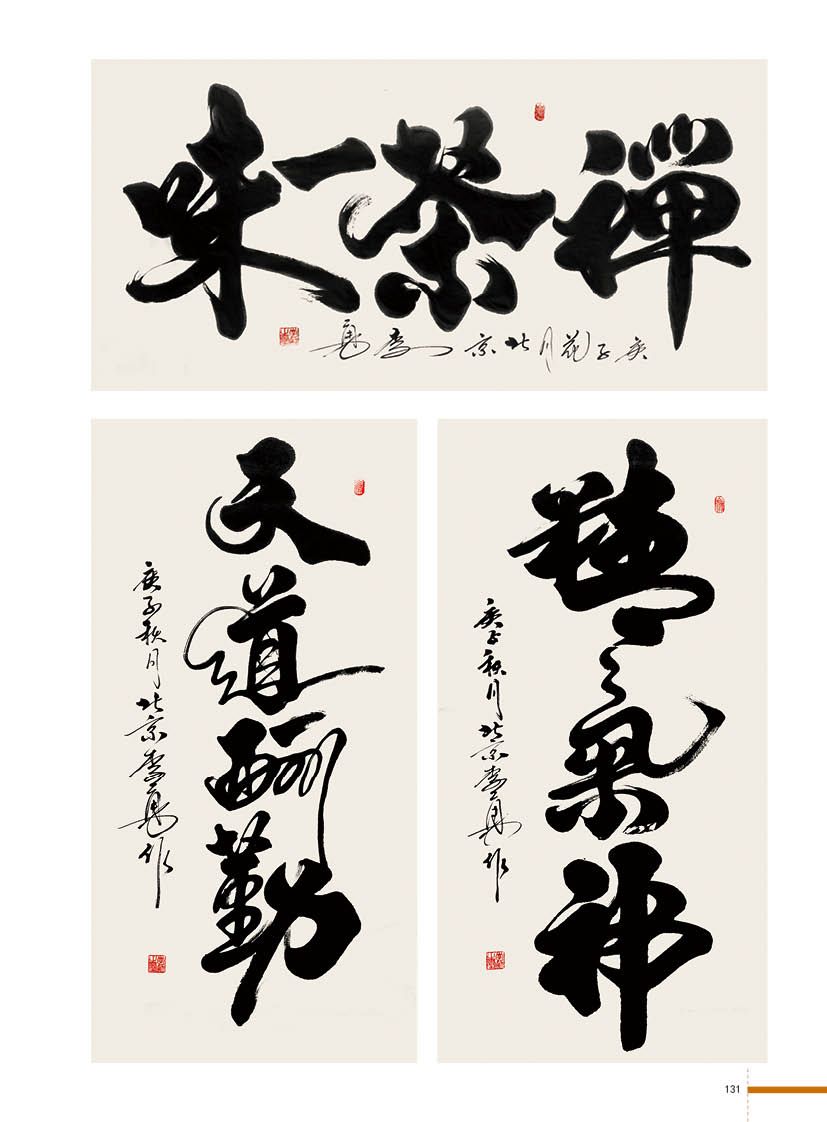 禪茶一味
庚子花月北京李
天道酬勤
庚子秋月北京李
作
精氣神
庚子秋月北京李
作
131